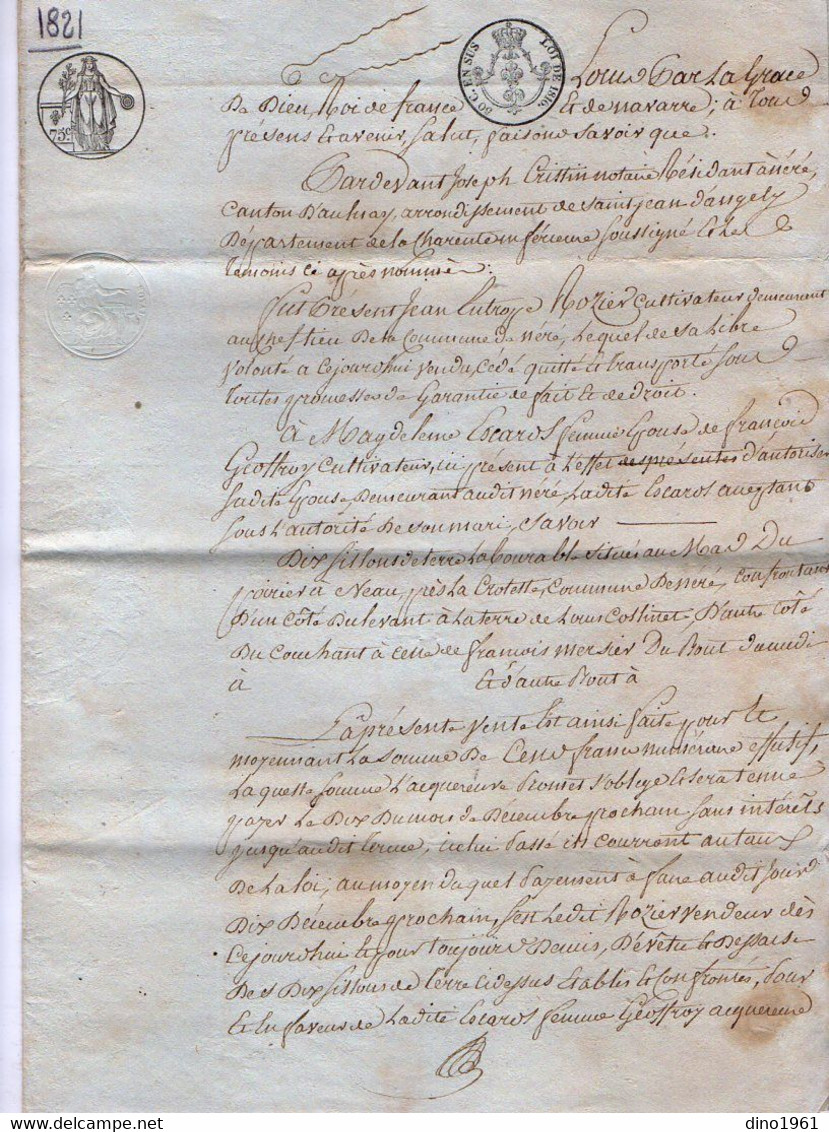 1821
75c.
50 C. EN SUS LOI DE 1816.
Louis Par La Grace
De Dieu, Roi de france Et de navarre; à Tous
présens Et avenir, Salut, faisons Savoir que.
Pardevant Joseph Crissin notaire Résidant à néré,
Canton D'aulnay, arrondissement de Saint jean d'angely
Département de la Charente inférieure Soussigné Et les
temoins ci après nommés:
fut Présent Jean Rozier Cultivateur demeurant
au chef lieu De la Commune de néré, Lequel de sa libre
volonté a Cejourdhui vendu, Cédé quitté et transporté Sous
toutes promesses de Garantie de fait Et de droit.
à Magdeleine Escaros femme Epouse de françois
Geoffroy Cultivateur, ici présent à L'effet des présentes d'autoriser
Sadite Epouse, Demeurant audit néré, Ladite Escaros acceptant
Sous l'autorité De son mari, Savoir
Dix Sillons de terre Labourable Situés au Mas Du
poirier à Neau, près La Crotette, Commune De néré, Confrontant
D'un Côté Du levant à La terre de Louis Cossinet, D'autre Côté
Du Couchant à Celle de francois mersier Du Bout du midi
à Et d'autre Bout à
La présente vente Est ainsi faite pour Et
moyennant La Somme De Cent francs numéraire effectif,
Laquelle Somme L'acquereure Promet S'oblige Et sera tenue
payer Le Dix Du mois de Décembre prochain Sans intérêts
jusqu'audit terme, icelui Passé ils Courront au taux
De La loi; au moyen duquel Payement à faire audit Jour
Dix Décembre prochain, S'est Ledit Rozier vendeur dès
Cejourdhui Et pour toujours Demis, Dévêtu Et Dessaisi
Des Dix Sillons de Terre Cidessus Etablis Et Confrontés, Pour
Et En faveur de Ladite Escaros femme Geoffroy acquereure
dino1961